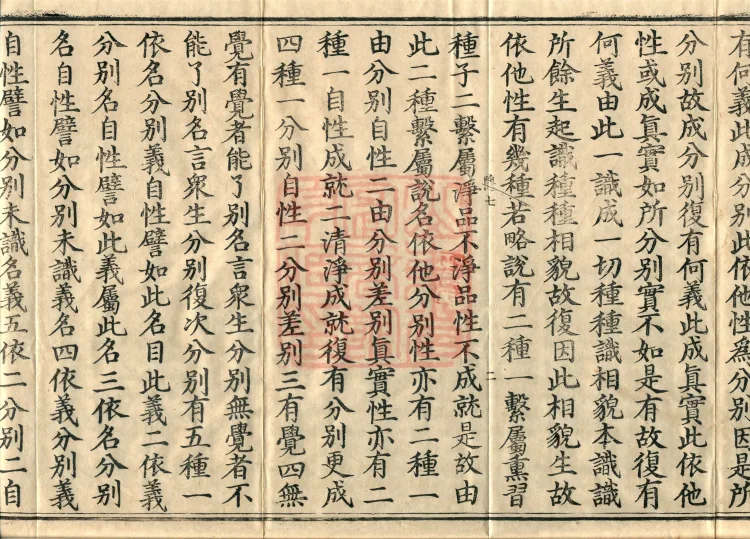 有何義此成分別此依他性爲分別因是所
分別故成分別復有何義此成眞實此依他
性或成眞實如所分別實不如是有故復有
何義由此一識成一切種種識相貌本識識
所餘生起識種種相貌故復因此相貌生故
依他性有幾種若略說有二種一繫屬熏習
種子二繫屬淨品不淨品性不成就是故由
此二種繫屬說名依他分別性亦有二種一
由分別自性二由分別差別眞實性亦有二
種一自性成就二清淨成就復有分別更成
四種一分別自性二分別差別三有覺四無
覺有覺者能了別名言衆生分別無覺者不
能了別名言衆生分別復次分別有五種一
依名分別義自性譬如此名目此義二依義
分別名自性譬如此義屬此名三依名分別
名自性譬如分別未識義名四依義分別義
自性譬如分別未識名義五依二分別二自